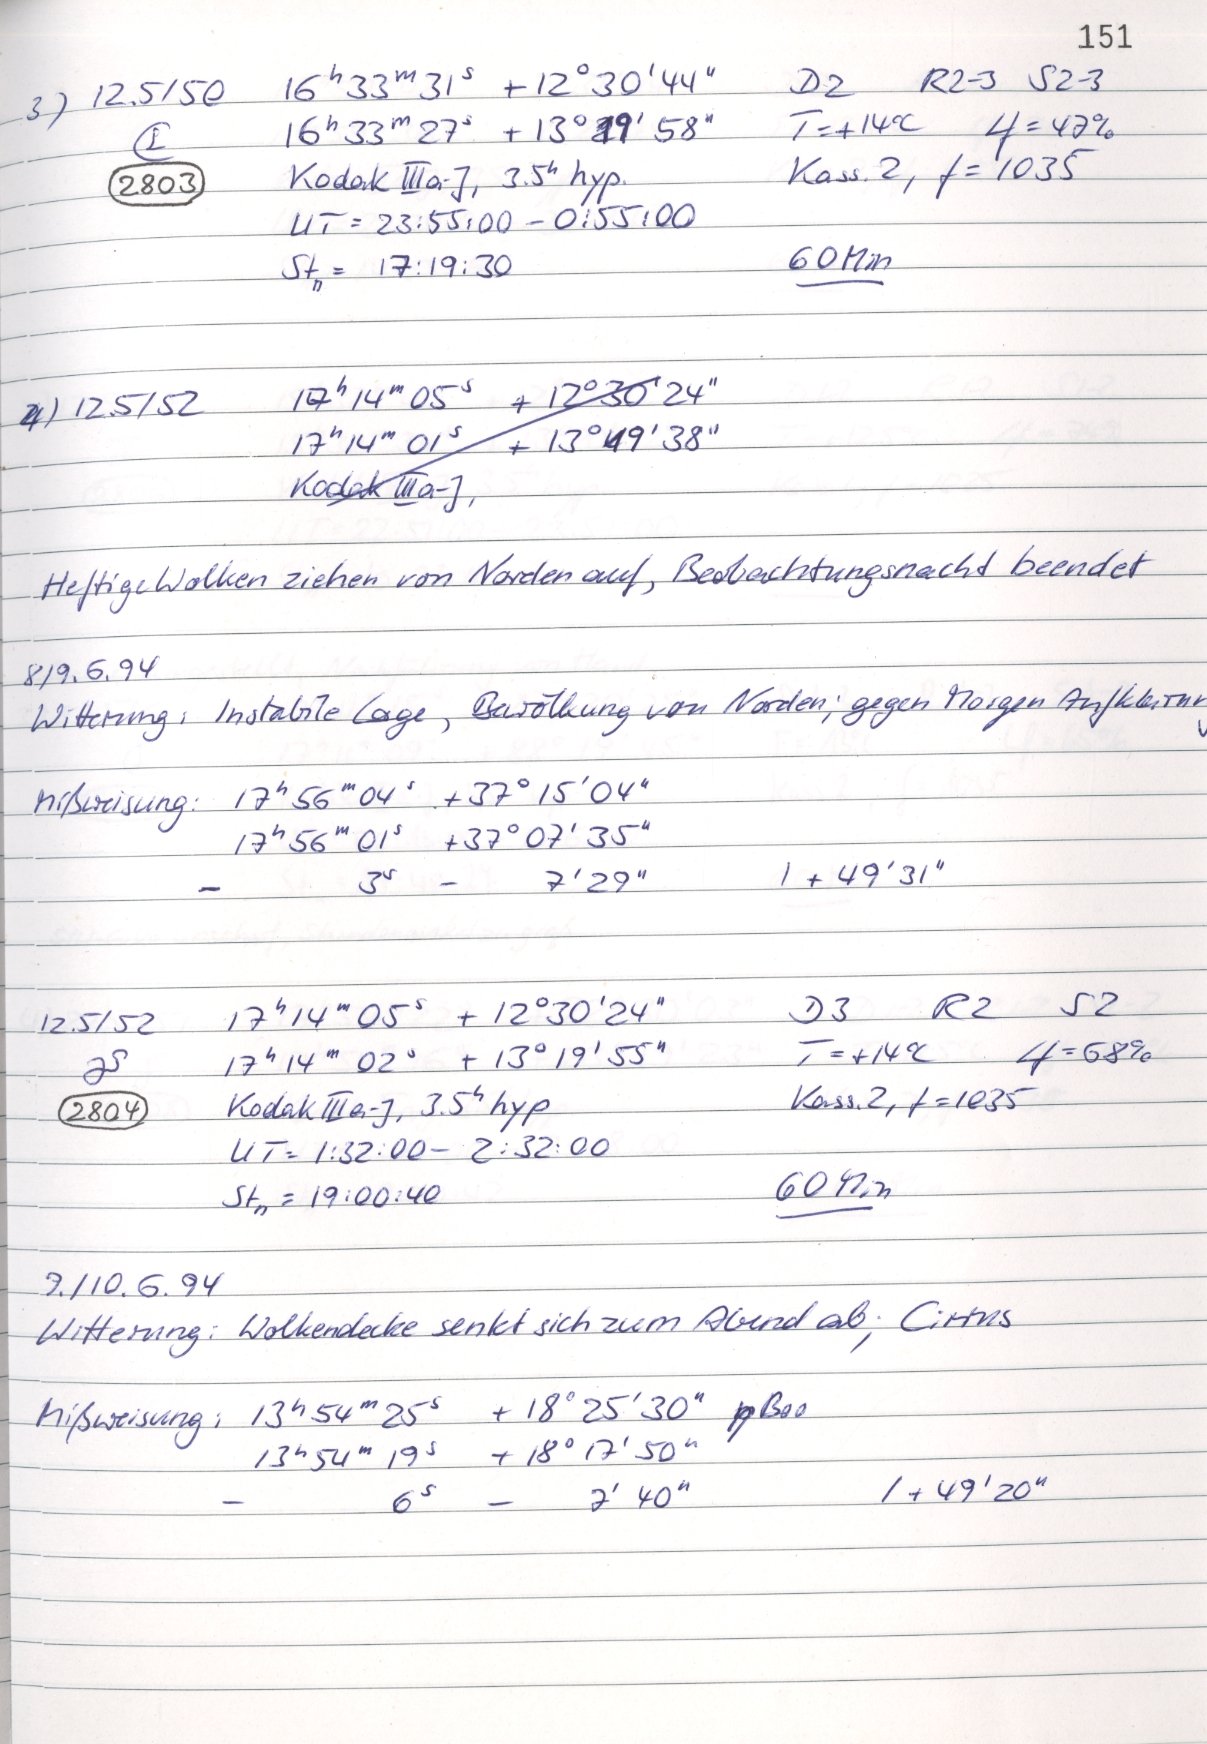 151
3) 12.5/50 16ʰ33ᵐ31ˢ +12°30'44" D2 R2-3 S2-3
16ʰ33ᵐ27ˢ +13°19'58" T=+14°C φ=47%
2803 Kodak IIIa-J, 3.5ʰ hyp. Kass. 2, f=1035
UT = 23:55:00 – 0:55:00
Stₙ = 17:19:30 60 Min
4) 12.5/52 17ʰ14ᵐ05ˢ +12°30'24"
17ʰ14ᵐ01ˢ +13°19'38"
Kodak IIIa-J,
Heftige Wolken ziehen von Norden auf, Beobachtungsnacht beendet
8/9.6.94
Witterung: Instabile Lage, Bewölkung von Norden; gegen Morgen Aufklarung
Mißweisung: 17ʰ56ᵐ04ˢ +37°15'04"
17ʰ56ᵐ01ˢ +37°07'35"
– 3ˢ – 7'29" / +49'31"
12.5/52 17ʰ14ᵐ05ˢ +12°30'24" D3 R2 S2
17ʰ14ᵐ02ˢ +13°19'55" T=+14°C φ=68%
2804 Kodak IIIa-J, 3.5ʰ hyp Kass. 2, f=1035
UT = 1:32:00 – 2:32:00
Stₙ = 19:00:40 60 Min
9./10.6.94
Witterung: Wolkendecke senkt sich zum Abend ab; Cirrus
Mißweisung: 13ʰ54ᵐ25ˢ +18°25'30" η Boo
13ʰ54ᵐ19ˢ +18°17'50"
– 6ˢ – 7'40" / +49'20"